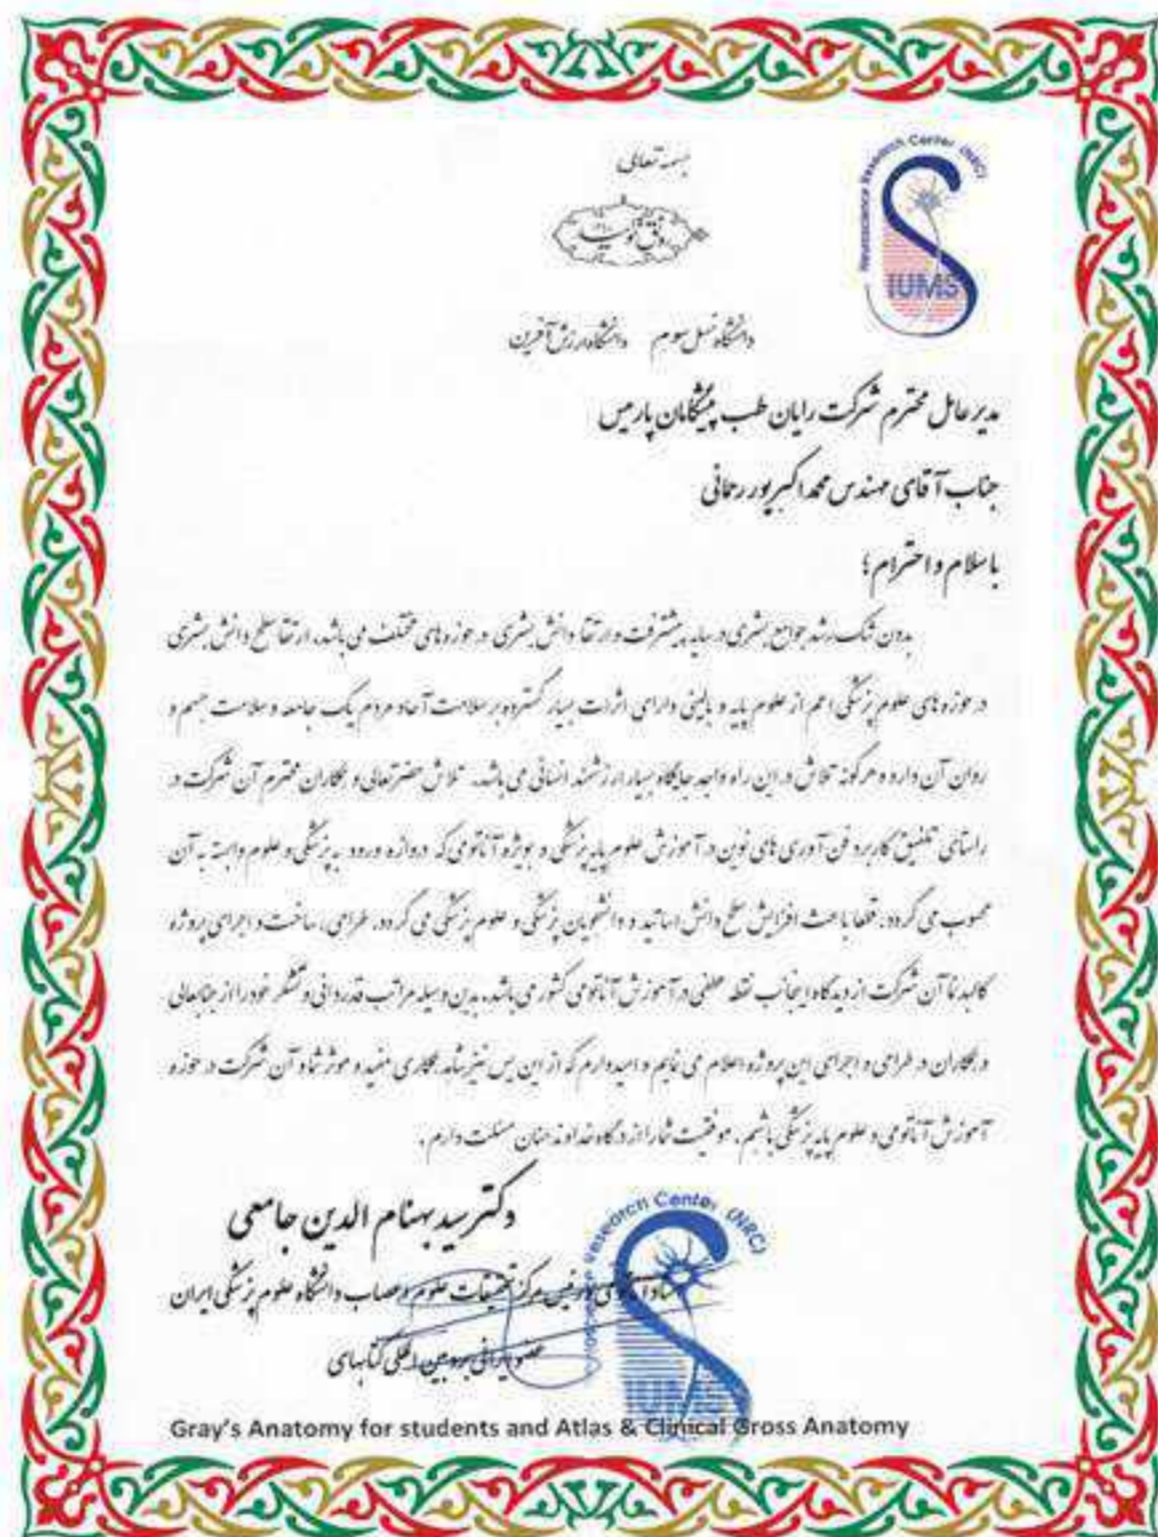 بسمه تعالی
Neuroscience Research Center (NRC)
IUMS
دانشگاه نسل سوم دانشگاه ارزش آفرین
مدیر عامل محترم شرکت رایان طب پیشگامان پارس
جناب آقای مهندس محمد اکبرپور رحمانی
با سلام و احترام ؛
بدون شک رشد جوامع بشری در سایه پیشرفت و ارتقا دانش بشری در حوزه های مختلف می باشد. ارتقا سطح دانش بشری
در حوزه های علوم پزشکی اعم از علوم پایه و بالینی دارای اثرات بسیار گسترده بر سلامت آحاد مردم یک جامعه و سلامت جسم و
روان آن دارد و هر گونه تلاش در این راه واجد جایگاه بسیار ارزشمند انسانی می باشد. تلاش حضرتعالی و همکاران محترم آن شرکت در
راستای تلفیق کاربرد فن آوری های نوین در آموزش علوم پایه پزشکی و بویژه آناتومی که دروازه ورود به پزشکی و علوم وابسته به آن
محسوب می گردد، قطعا باعث افزایش سطح دانش اساتید و دانشجویان پزشکی و علوم پزشکی می گردد. طراحی، ساخت و اجرای پروژه
کالبدنما آن شرکت از دیدگاه اینجانب نقطه عطفی در آموزش آناتومی کشور می باشد. بدین وسیله مراتب قدردانی و تشکر خود را از جنابعالی
و همکاران در طراحی و اجرای این پروژه اعلام می نمایم و امیدوارم که از این پس نیز شاهد همکاری مفید و موثر شما و آن شرکت در حوزه
آموزش آناتومی و علوم پایه پزشکی باشیم. موفقیت شما را از درگاه خداوند منان مسئلت دارم.
دکتر سید بهنام الدین جامعی
استاد آناتومی و رئیس مرکز تحقیقات علوم اعصاب دانشگاه علوم پزشکی ایران
عضو ایرانی برد بین المللی کتابهای
Gray's Anatomy for students and Atlas & Clinical Gross Anatomy
Research Center (NRC)
IUMS